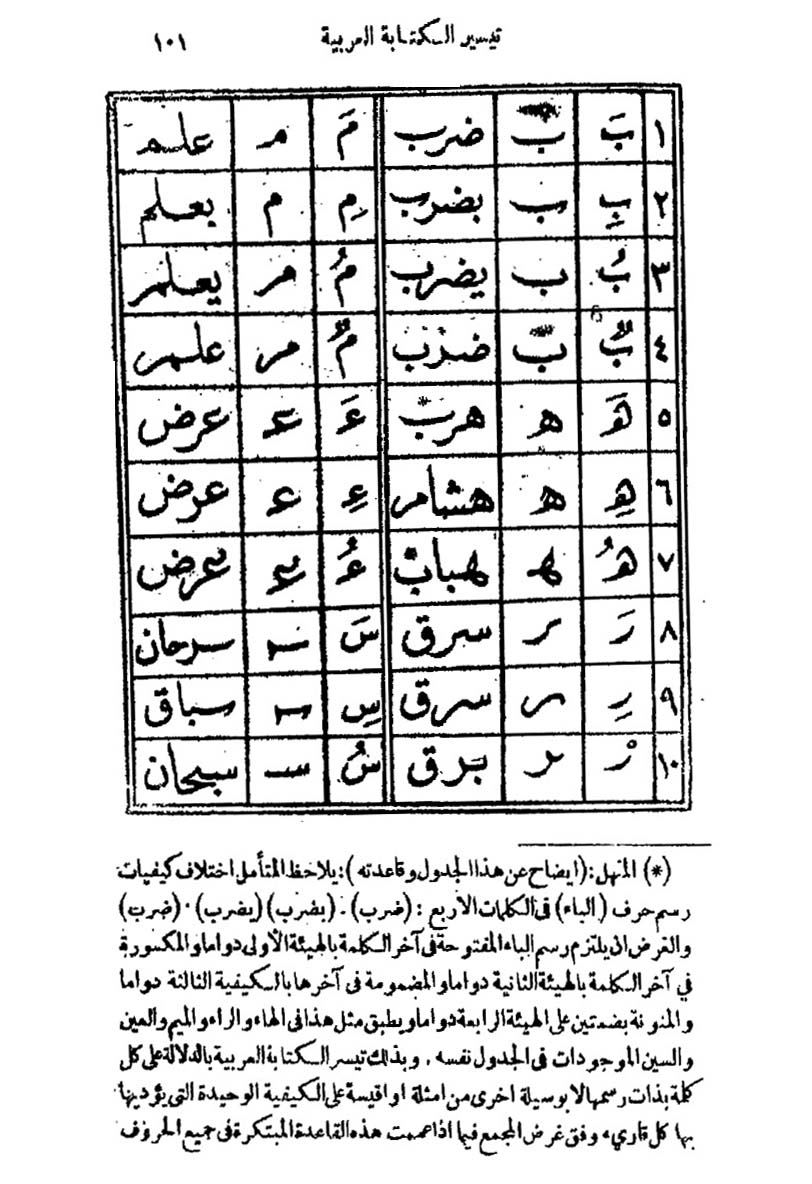 تيسير الكتابة العربية ١٠١
١ بَ ب ضرب مَ م علم
٢ بِ ب بضرب مِ م بعلم
٣ بُ ب يضرب مُ م يعلم
٤ بٌ ب ضرب مٌ م علم
٥ هَ ه هرب عَ ع عرض
٦ هِ ه هشام عِ ع عرض
٧ هُ ه هباب عُ ع عرض
٨ رَ ر سرق سَ س سرحان
٩ رِ ر سرق سِ س سباق
١٠ رْ ر برق سُ س سبحان
(*) المنهل : (ايضاح عن هذا الجدول وقاعدته) : يلاحظ المتأمل اختلاف كيفيات
رسم حرف (الباء) فى الكلمات الأربع : (ضرب) . (بضرب) (يضرب) . (ضرب)
والغرض ان يلتزم رسم الباء المفتوحة فى آخر الكلمة بالهيئة الأولى دواما والمكسورة
في آخر الكلمة بالهيئة الثانية دواما والمضمومة فى آخرها بالكيفية الثالثة دواما
والمنونة بضمتين على الهيئة الرابعة دواما ويطبق مثل هذا فى الهاء والراء والميم والعين
والسين الموجودات فى الجدول نفسه . وبذلك تيسر الكتابة العربية بالدلالة على كل
كلمة بذات رسمها لا بوسيلة اخرى من امثلة او اقيسة على الكيفية الوحيدة التى يؤديها
بها كل قارىء وفق غرض المجمع فيما اذا عممت هذه القاعدة المبتكرة فى جميع الحروف